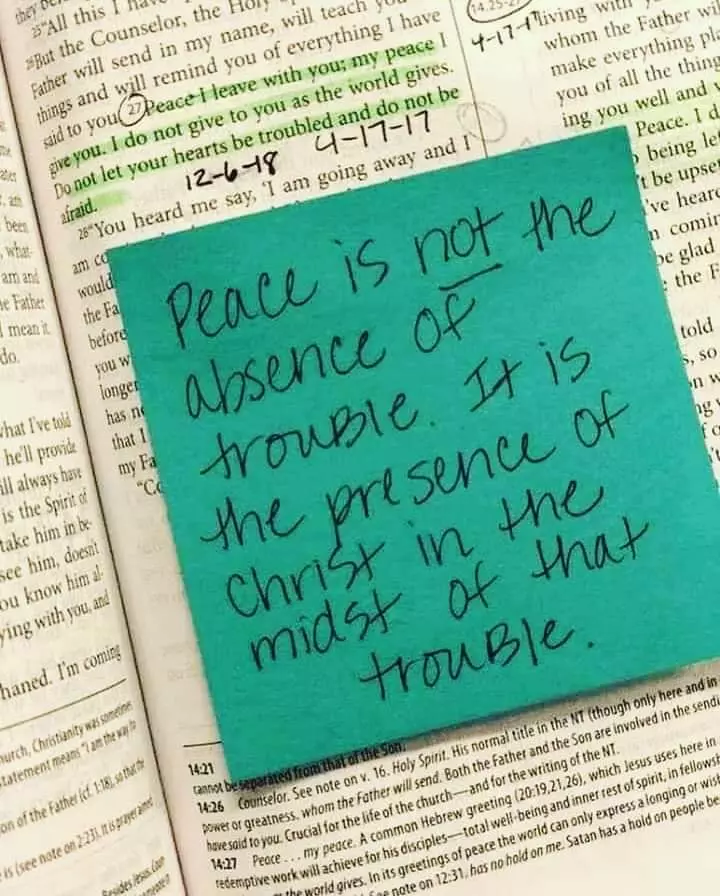 been
what-
am and
Father
mean it
do.
I've told
he'll provide
always have
is the Spirit of
take him in be-
see him, doesn't
know him al-
with you, and
I'm coming
Christianity was sometimes
means "I am the way to
of the Father (cf. 1:18), so that the
is (see note on 2:23). It is prayer aimed
25"All this I have
26But the Counselor, the Holy
Father will send in my name, will teach you
things and will remind you of everything I have
said to you. 27 Peace I leave with you; my peace I
give you. I do not give to you as the world gives.
Do not let your hearts be troubled and do not be
afraid.
12-6-18 4-17-17
28"You heard me say, 'I am going away and I
am
would
the
before
you
longer
has
that I
my
14:25-27
4-17-17
living with
whom the Father will
make everything
you of all the things
ing you well and
Peace. I
being
be upset
've heard
be glad
the
told
so
Peace is not the
absence of
trouble. It is
the presence of
Christ in the
midst of that
trouble.
14:21
cannot be separated from that of the Son.
14:26 Counselor. See note on v. 16. Holy Spirit. His normal title in the NT (though only here and in
power or greatness. whom the Father will send. Both the Father and the Son are involved in the
have said to you. Crucial for the life of the church—and for the writing of the NT.
14:27 Peace . . . my peace. A common Hebrew greeting (20:19,21,26), which Jesus uses here in
redemptive work will achieve for his disciples—total well-being and inner rest of spirit, in
the world gives. In its greetings of peace the world can only express a longing or
See note on 12:31. has no hold on me. Satan has a hold on people